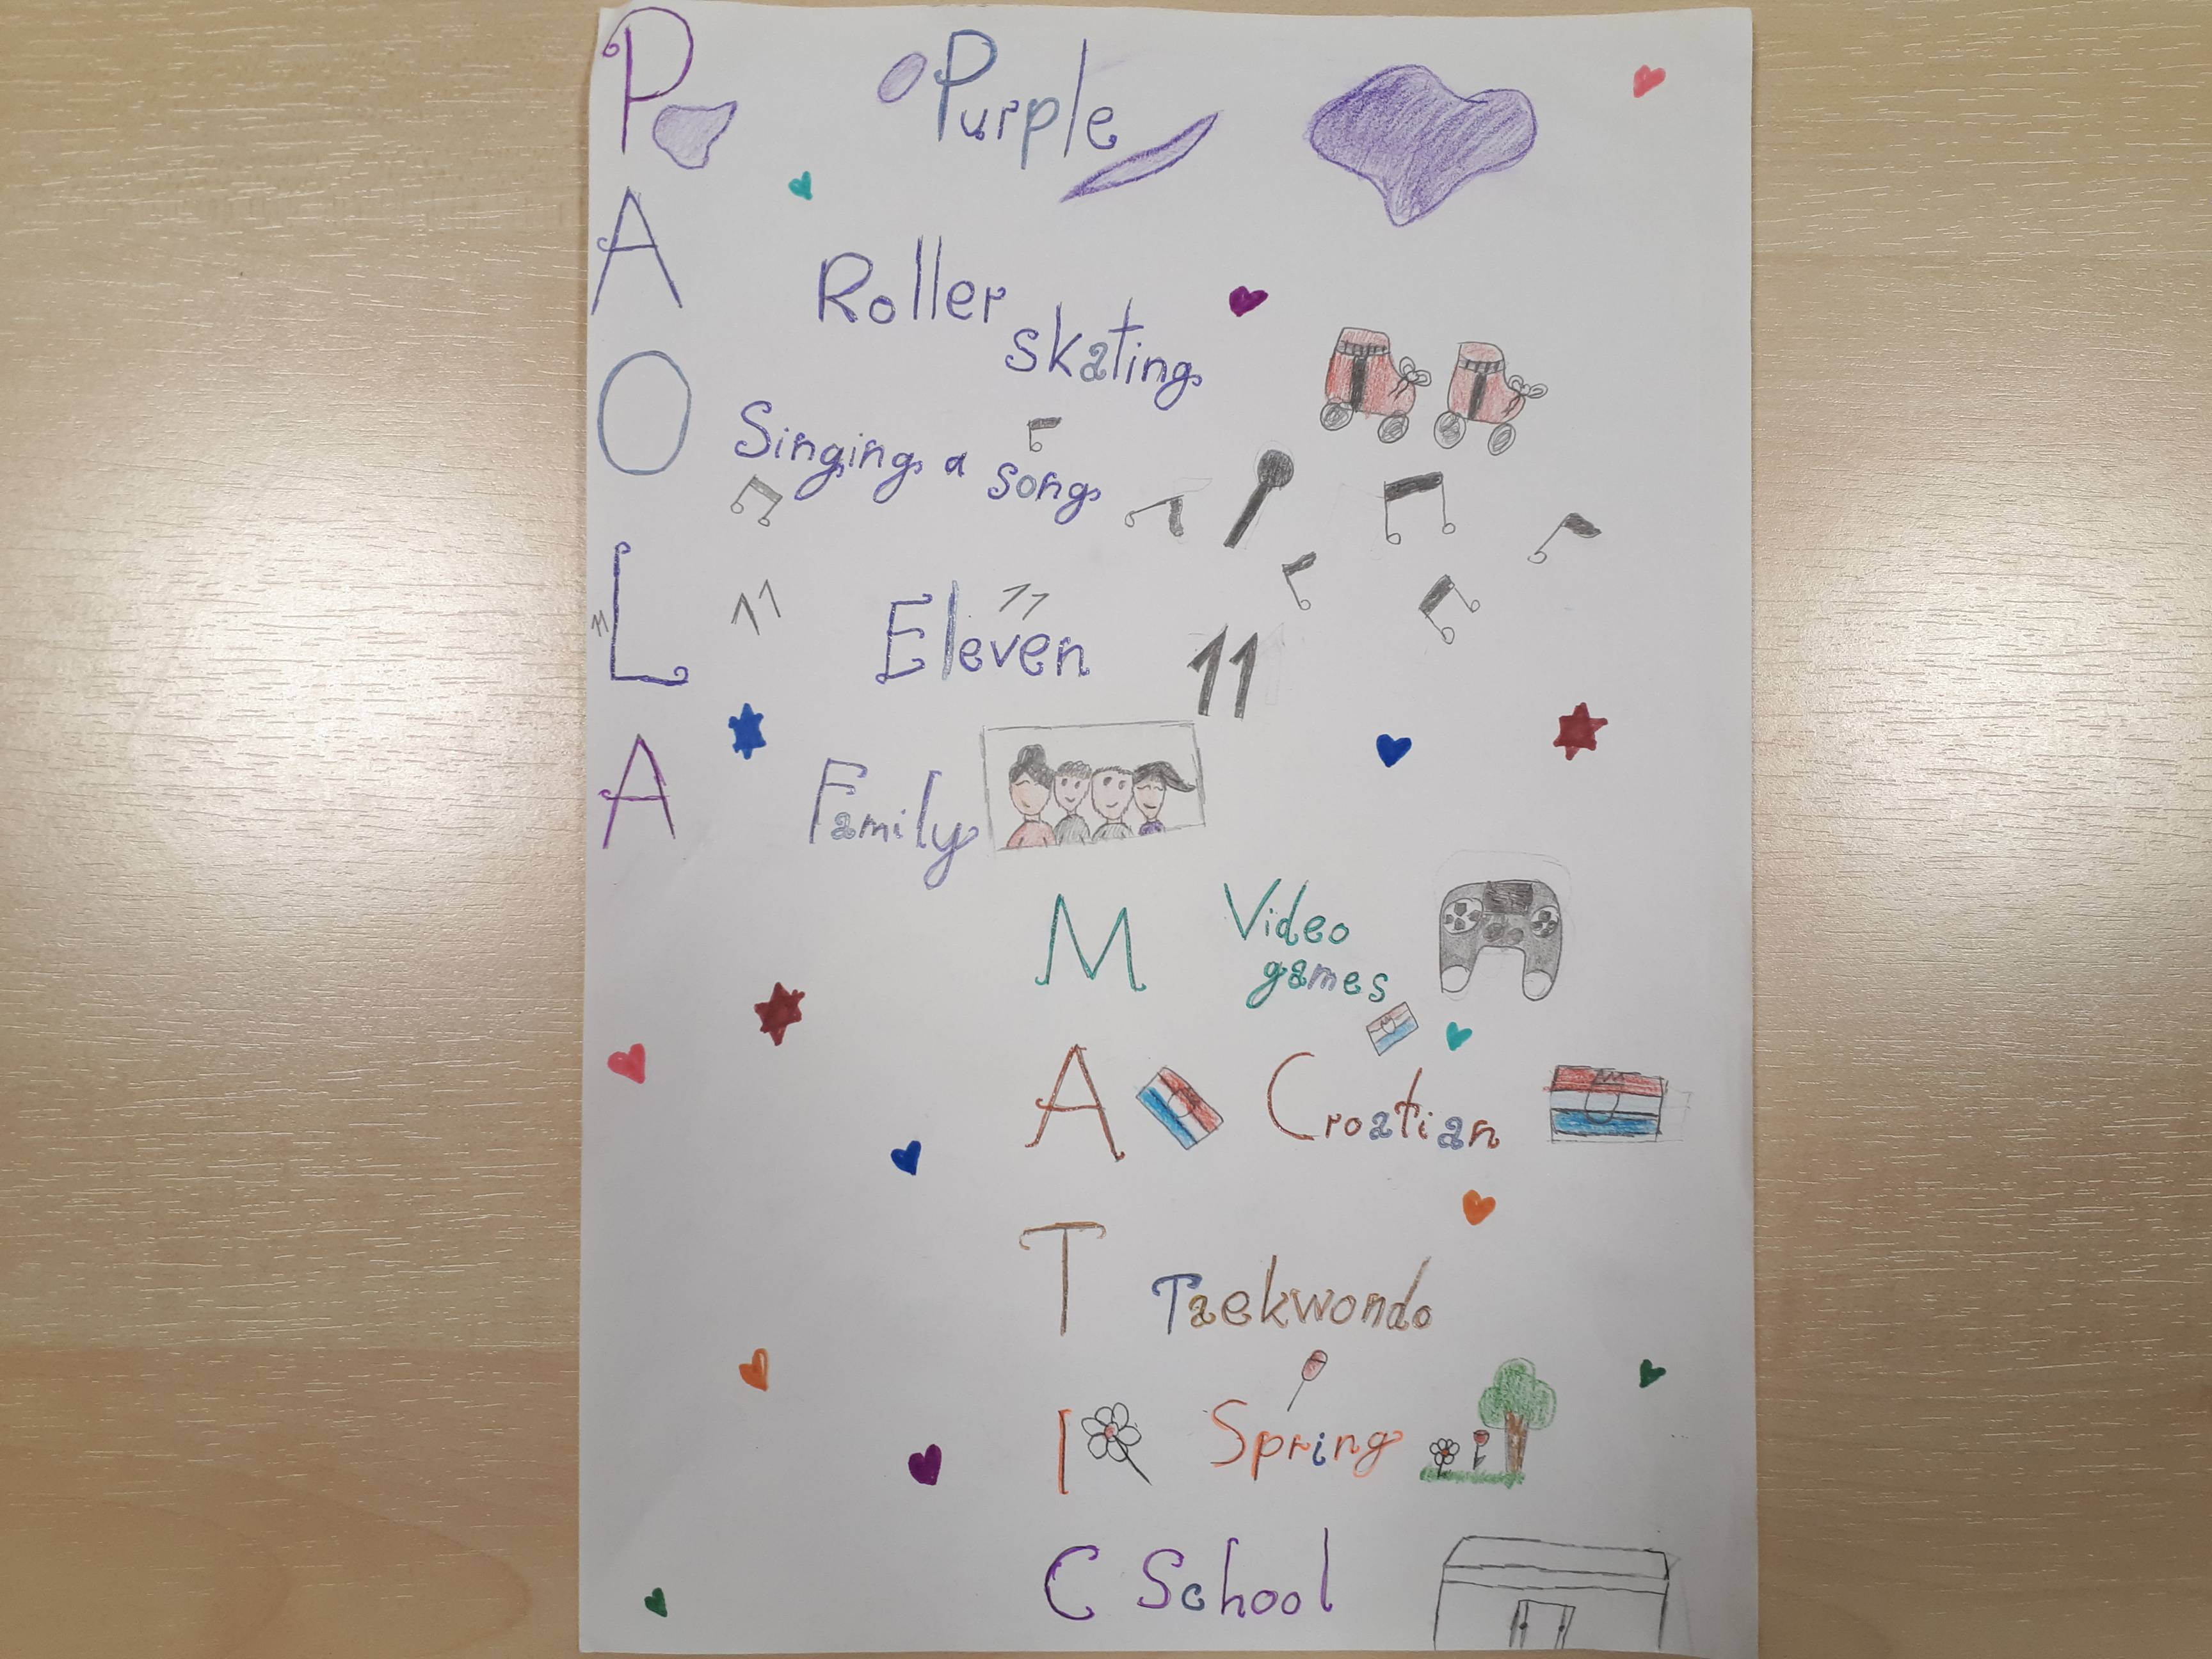 P Purple
A Roller
skating
O Singing a song
11 L 11 Eleven 11 11
A Family
M Video
games
A Croatian
T Taekwondo
I Spring
C School